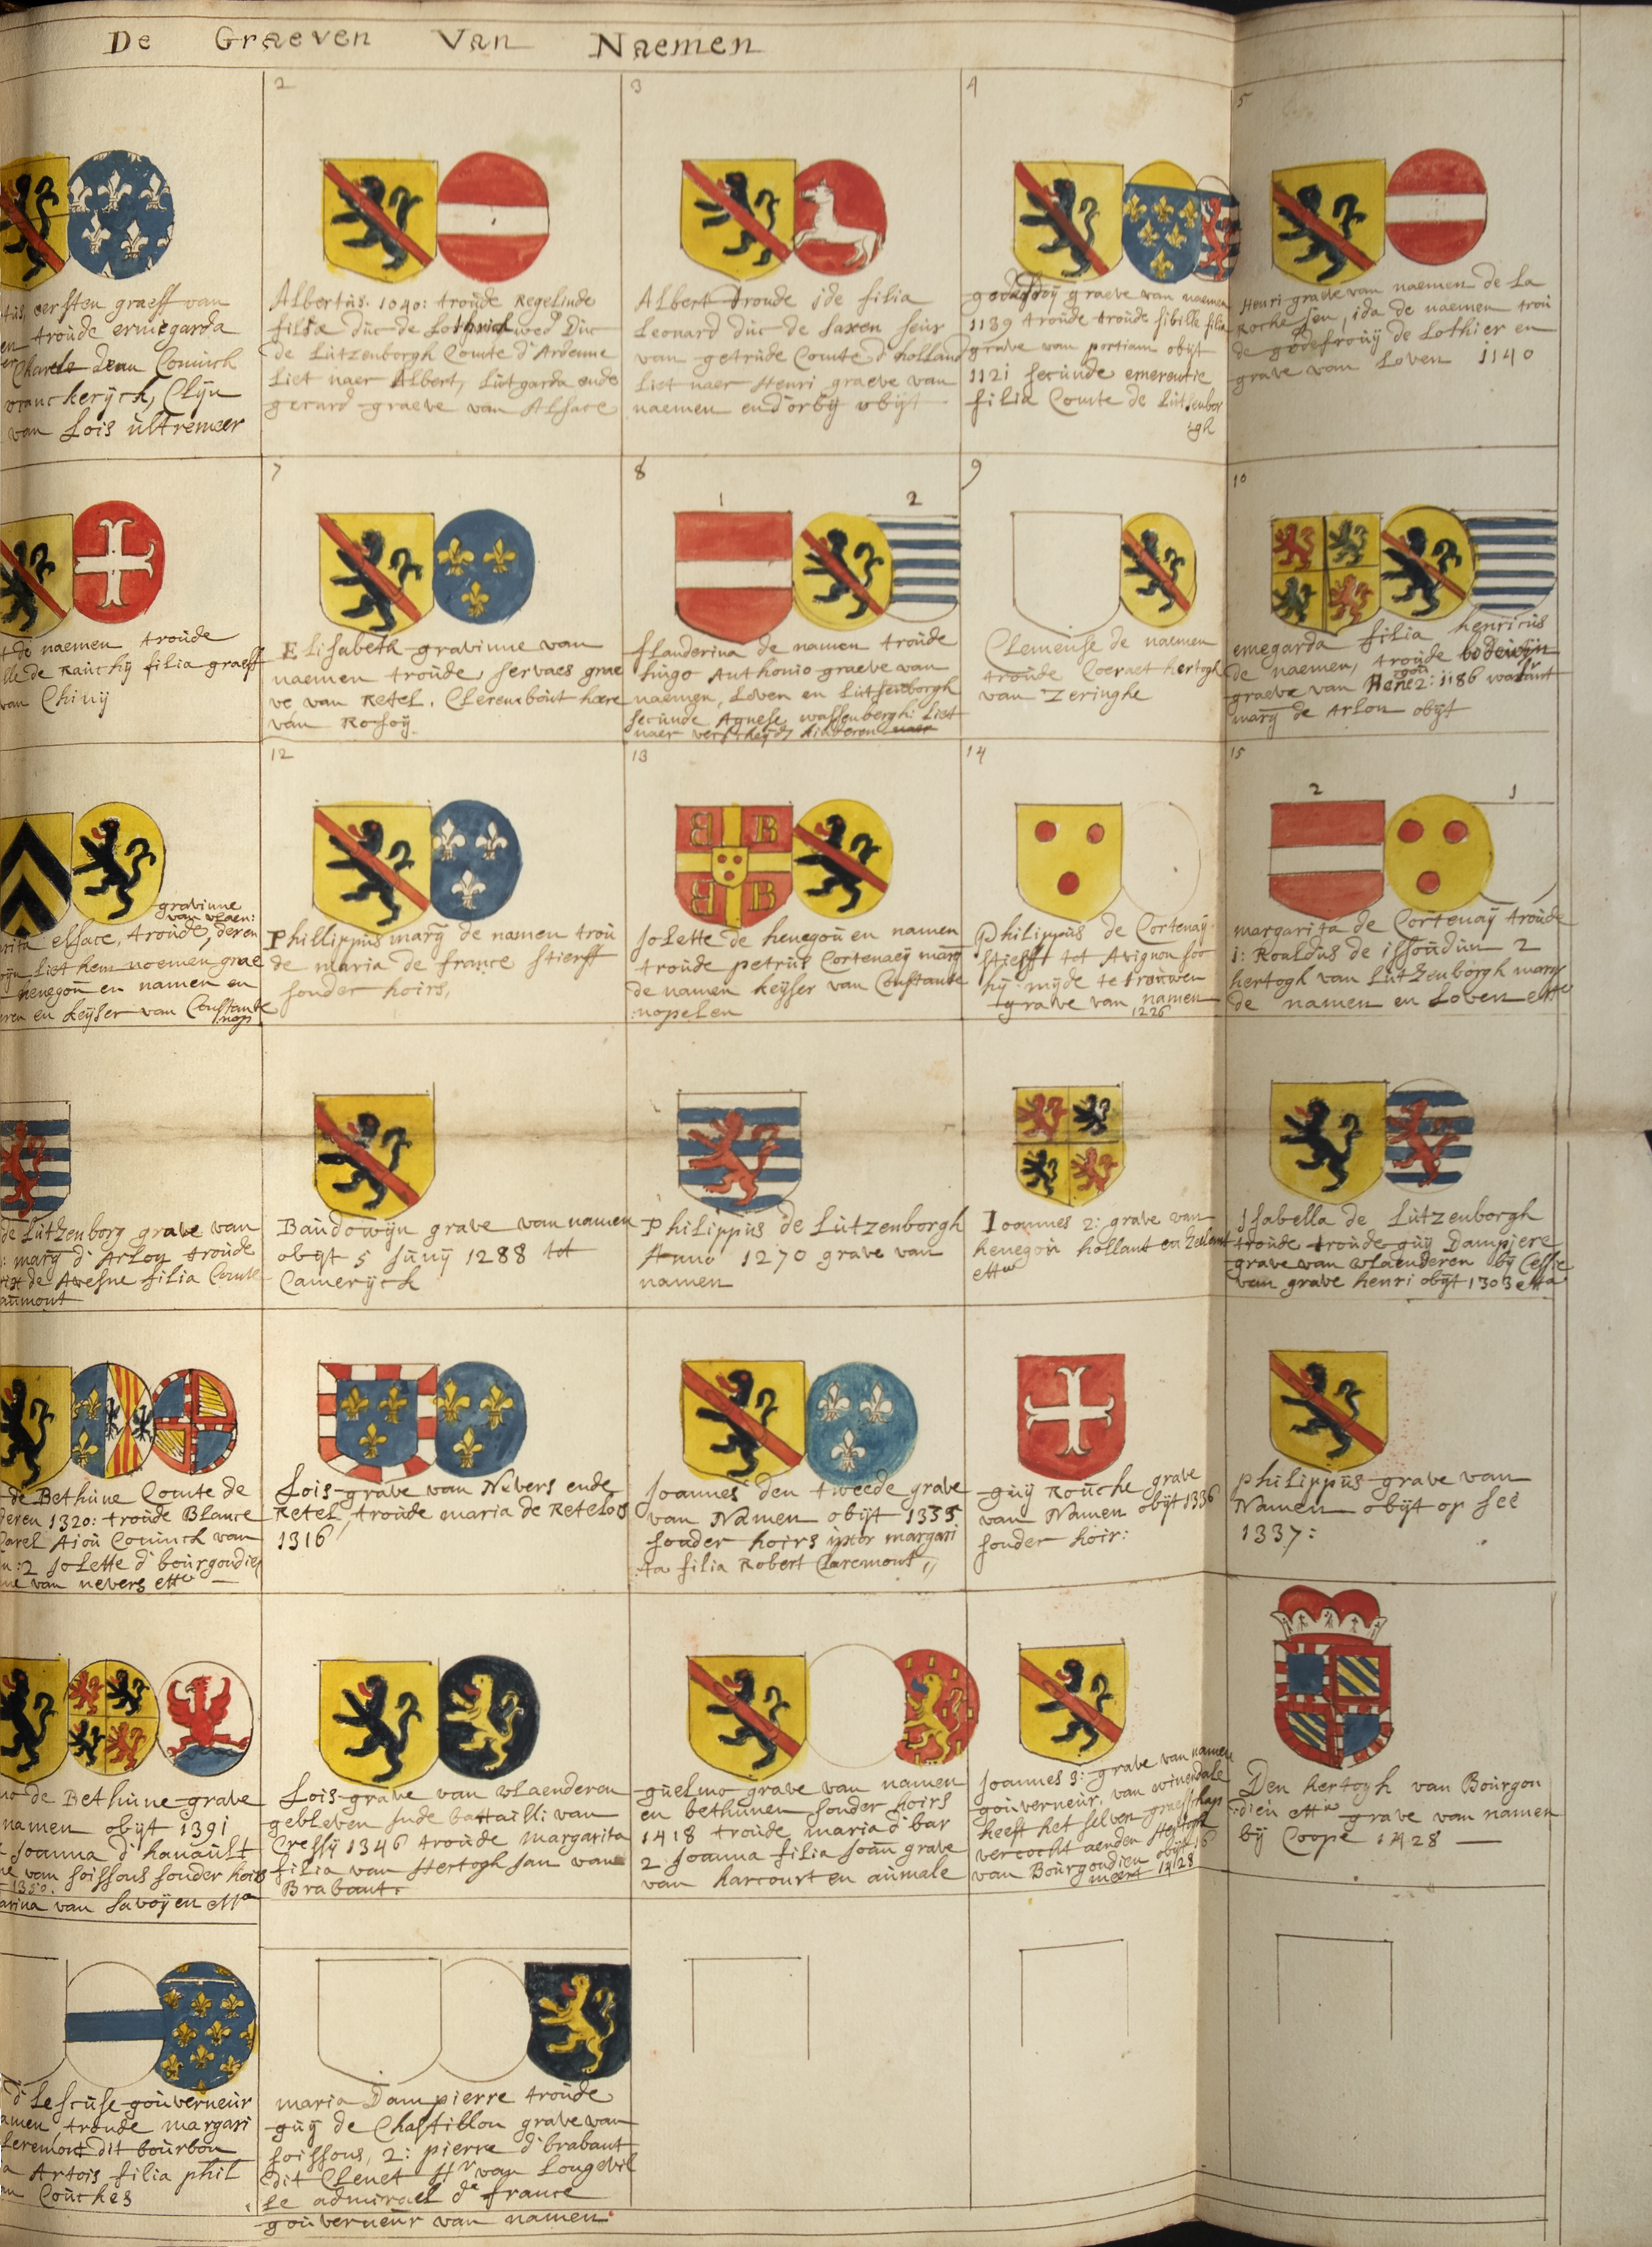 De Graeven Van Naemen
eersten graeff van
troude ermegarda
Charels den Coninck
vranckerÿck, Clÿn
van Lois ultremeer
2
Albertus. 1040: troude Regelinde
filia duc de Lothrick wed Duc
de Lutzenborgh Comte d'Ardenne
Liet naer Albert, Lutgarda ende
gerard graeve van Alsace
3
Albert troude ide filia
Leonard duc de saxen seur
van getrude Comte d'holland
Liet naer Henri graeve van
naemen end'orbÿ obÿt
4
graeve van naemen
1139 troude troude sibille filia
grave van portiam obÿt
1121 secunde emerentie
filia Comte de Lutsenbor
:gh
5
Henri grave van naemen de La
Roche sen, ida de naemen trou
de godefrouÿ de Lothier en
grave van Loven 1140
de naemen troude
de Rauchÿ filia graeff
van Chinÿ
7
Elisabeth gravinne van
naemen troude, servaes grae
ve van Retel. Clerembout heere
van Rosoÿ.
8
1 2
flanderina de namen troude
hugo Anthonio graeve van
naemen, Loven en Lutsenborgh
secunde Agnese wassenbergh: Liet
naer verscheÿdÿ kinderen naer
9
Clemense de naemen
troude Coeraet hertogh
van Zeringhe
10
emegarda filia henricus
de naemen, troude bodewÿn
graeve van Hene 2: 1186
marÿ de Arlon obÿt
gravinne
van vlaen:
elsace, troude, deren
Liet hem noemen grae
henegou en namen en
en keÿser van Constante
nop
12
Phillippus marÿ de namen trou
de maria de france stierff
sonder hoirs,
13
B B
B B
Jolette de henegou en namen
troude petrus Cortenaeÿ marÿ
de namen keÿser van Constante
:nopelen
14
Philippus de Cortenaÿ
stierft tot Avignon soo
hÿ mÿde te trouwen
grave van namen
1226
15
2 1
margarita de Cortenaÿ troude
1: Roaldus de issoudun 2
hertogh van Lutzenborgh marÿ
de namen en Loven etta
de Lutzenborg grave van
marÿ d'Arlon troude
de Avesne filia Comte
aumont
Baudowÿn grave van namen
obÿt 5 junÿ 1288 tot
Camerÿck
Philippus de Lutzenborgh
Anno 1270 grave van
namen
Ioannes 2: grave van
henegou hollant en Zeelant
etta
Jsabella de Lutzenborgh
troude troude guÿ Dampiere
grave van vlaenderen bÿ Cessie
van grave henri obÿt 1303 etta
de Bethune Comte de
deren 1320: troude Blance
Carel Aiou Coninck van
:2 Jolette d'bourgondien
van nevers etta
Lois grave van Nevers ende
Retel, troude maria de Retelois
1316
Joannes den tweede grave
van Namen obÿt 1335
sonder hoirs uxor margari
:ta filia Robert Claremont,
guÿ Rouche grave
van Namen obÿt 1336
sonder hoir:
philippus grave van
Namen obÿt op see
1337:
de Bethune grave
namen obÿt 1391
Joanna d'hanault
van soissons sonder hoirs
1350.
van savoÿen etta
Lois grave van vlaenderen
gebleven inde battailli van
Cressÿ 1346 troude margarita
filia van Hertogh Jan van
Brabant.
guelmo grave van namen
en bethunen sonder hoirs
1418 troude maria d'bar
2 Joanna filia Joan grave
van harcourt en aumale
Joannes 3: grave van namen
gouverneur, van winendale
heeft het selven graefschap
vercocht aenden Hertogh
van Bourgondien obÿt 16
meert 1428
Den hertogh van Bourgon
:dien etta grave van namen
bÿ Coope 1428
d'Lescuse gouverneur
amen, troude margari
Leremont dit bourbon
Artois filia phil
Couches
maria Dampierre troude
guÿ de Chastillon grave van
soissons, 2: pierre d'brabant
dit Clenet Hr van Longevil
Le admirael de france
gouverneur van namen